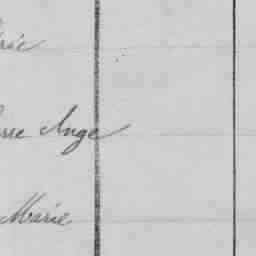 rie
rre Ange
Marie